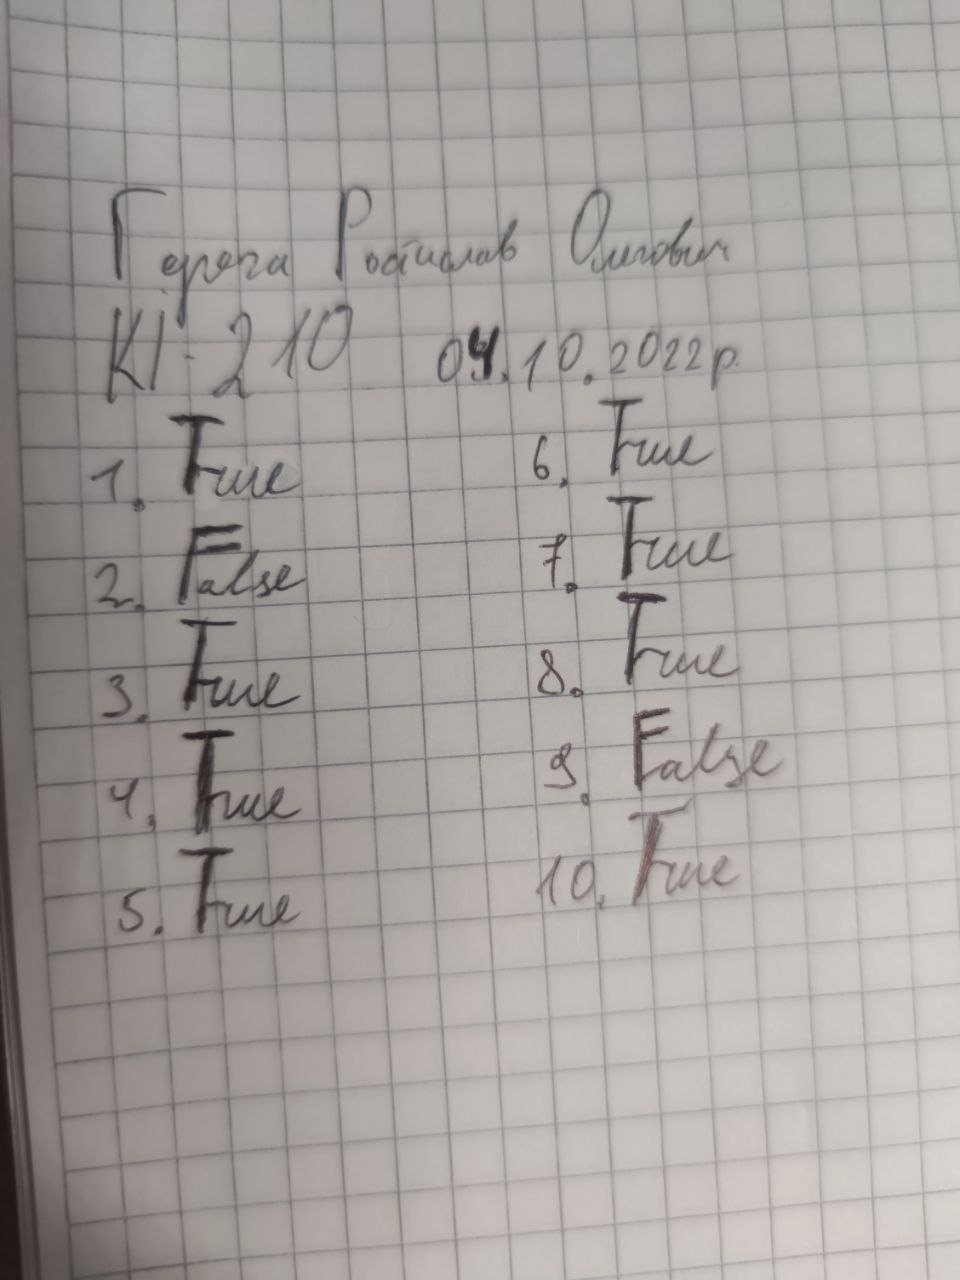 Ростислав Олегович
КІ-210 04.10.2022р.
1. True
2. False
3. True
4. True
5. True
6. True
7. True
8. True
9. False
10. True